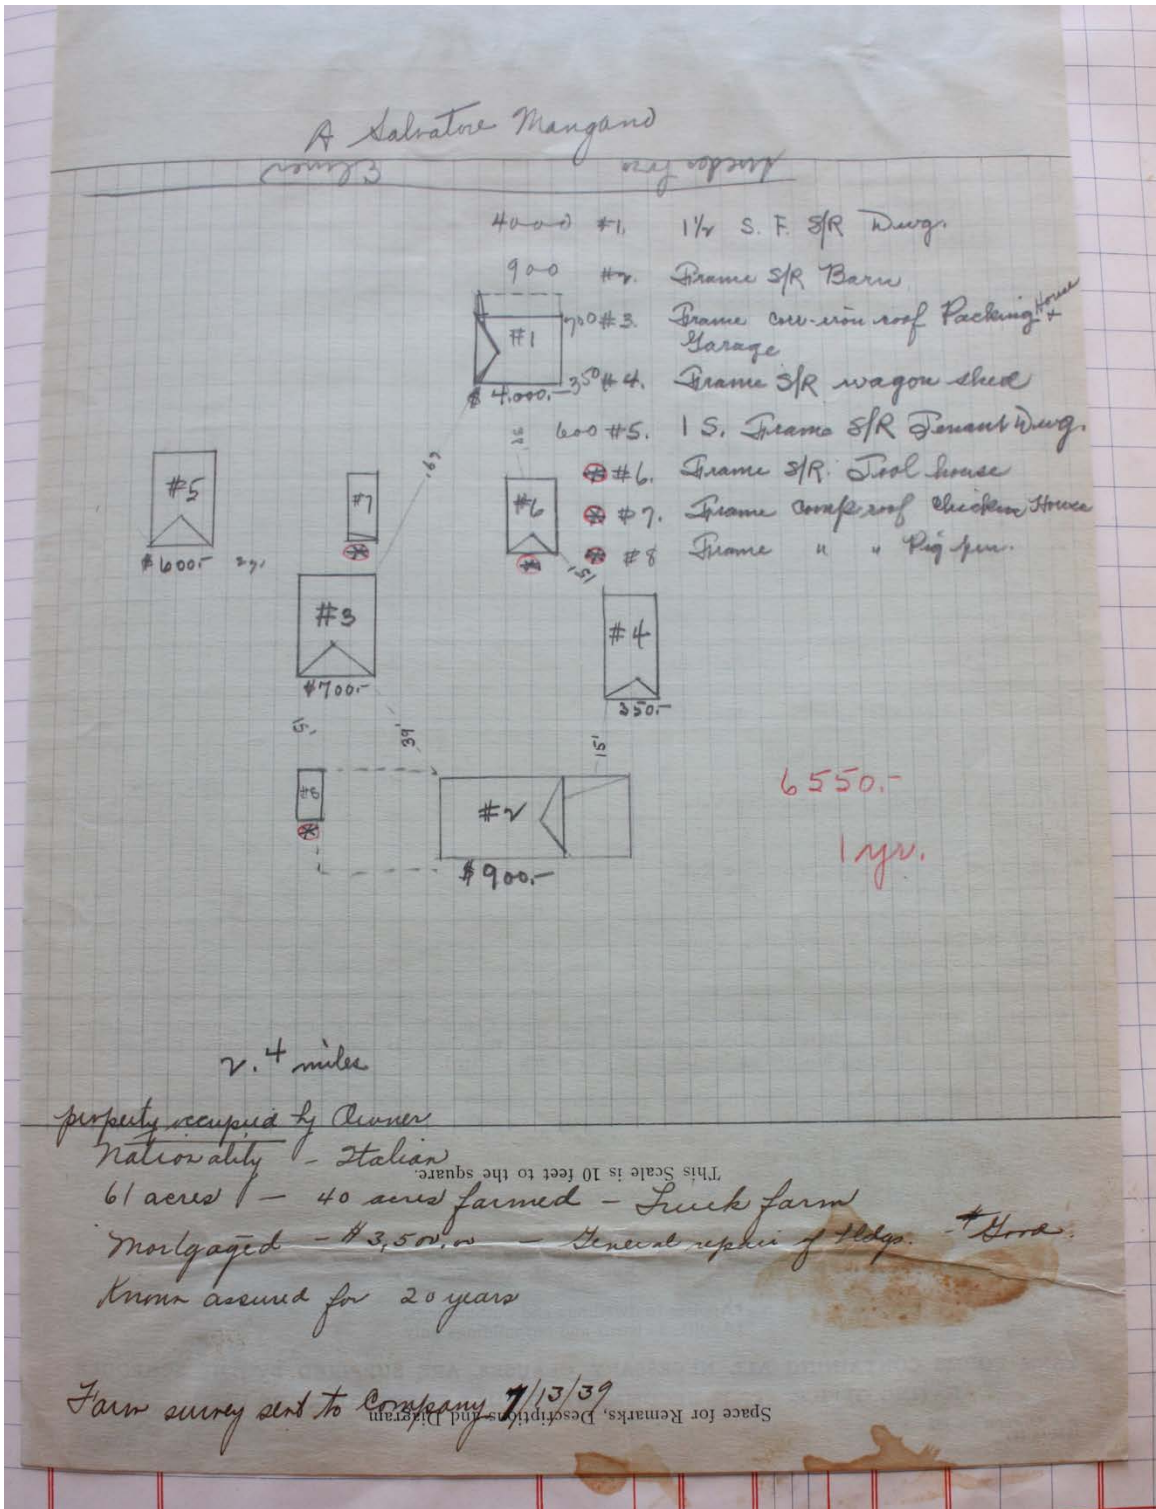 A Salvatore Mangano
Elmer
4000 #1. 1½ S. F. S/R Dwg.
900 #2. Frame S/R Barn
700 #3. Frame corr-iron roof Packing House +
Garage
350 #4. Frame S/R wagon shed
600 #5. 1 S. Frame S/R Tenant Dwg.
#6. Frame S/R. Tool house
#7. Frame comp roof chicken House
#8 Frame " " Pig pen.
#1
$ 4,000.-
18
67'
#5
$600.-
27'
#7
#6
15'
#3
$700.-
#4
350.-
15'
39'
15'
#8
#2
$900.-
6550.-
1 yr.
2.4 miles
property occupied by Owner
Nationality - Italian
This Scale is 10 feet to the square.
61 acres - 40 acres farmed - Truck farm
Mortgaged - $3,500.00 - General repair of bldgs. - Good.
Known assured for 20 years
Farm survey sent to Company 7/13/39
Space for Remarks, Descriptions and Diagram